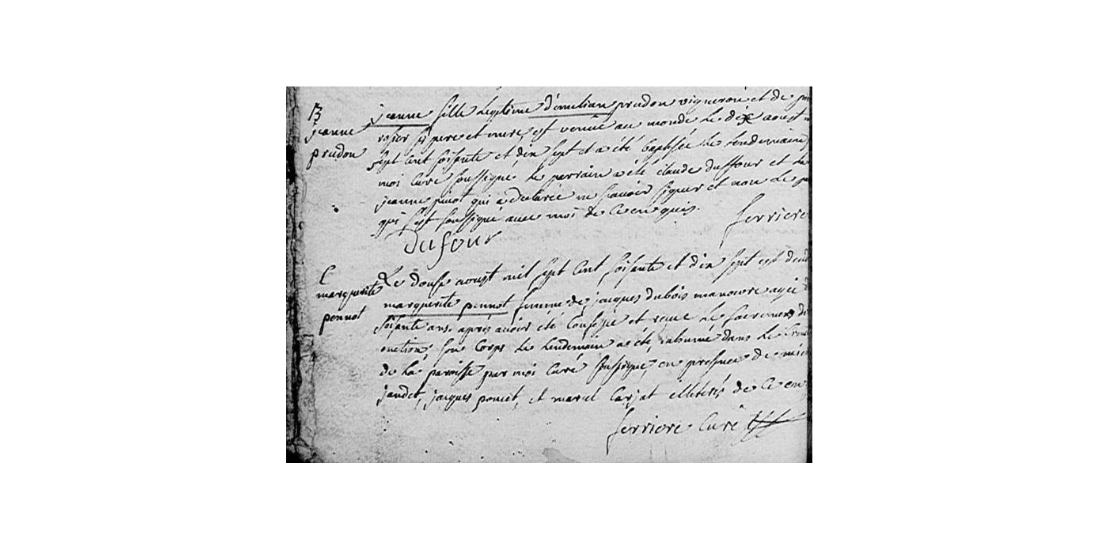 B
jeanne
prudon
jeanne fille legitime d'emilian prudon vigneron et de
ses pere et mere, est venüe au monde le dix aoust
sept cent soisante et dix sept et a été baptisée le lendemain
moi curé soussigné le parrain a été claude duffour et la
jeanne pinot qui a déclarée ne scavoir signer et non le
qui s'est soussigné avec moi de ce enquis.
ferriere
Dufour
E
marguerite
pennot
Le douse aoust mil sept cent soisante et dix sept est
marguerite pennot femme de jacques dubois manoevre agée
soisante ans. apres avoir été confessée et reçue le sacrement
onction; son corps le lendemain a été inhumé dans le
de la paroisse par moi curé soussigné, en presence de
jandet, jacques poncet, et marcel carjat illétérés de ce en
ferriere curé